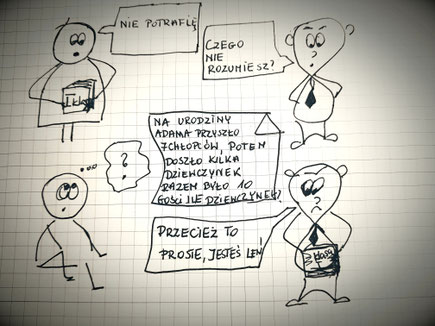 NIE POTRAFIĘ
CZEGO
NIE
ROZUMIESZ?
NA URODZINY
ADAMA PRZYSZŁO
7CHŁOPCÓW, POTEM
DOSZŁO KILKA
DZIEWCZYNEK
RAZEM BYŁO 10
GOŚCI ILE DZIEWCZYNEK?
?
PRZECIEŻ TO
PROSTE, JESTEŚ LEŃ